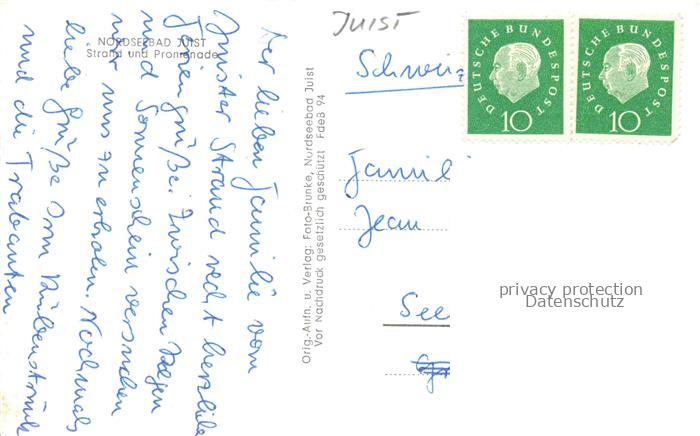 NORDSEEBAD JUIST
Strand und Promenade
Der lieben Familie vom
Juister Strand recht herzliche
Feriengrüße. Zwischen Regen
und Sonnenschein versuchen
wir uns zu erholen. Nochmals
liebe Grüße vom
und die Trabanten.
Orig.-Aufn. u. Verlag: Foto-Brunke, Nordseebad Juist
Vor Nachdruck gesetzlich geschützt FdeB 94
JUIST
Schweiz
Famili
Jean
See
DEUTSCHE BUNDESPOST
10
DEUTSCHE BUNDESPOST
10
privacy protection
Datenschutz